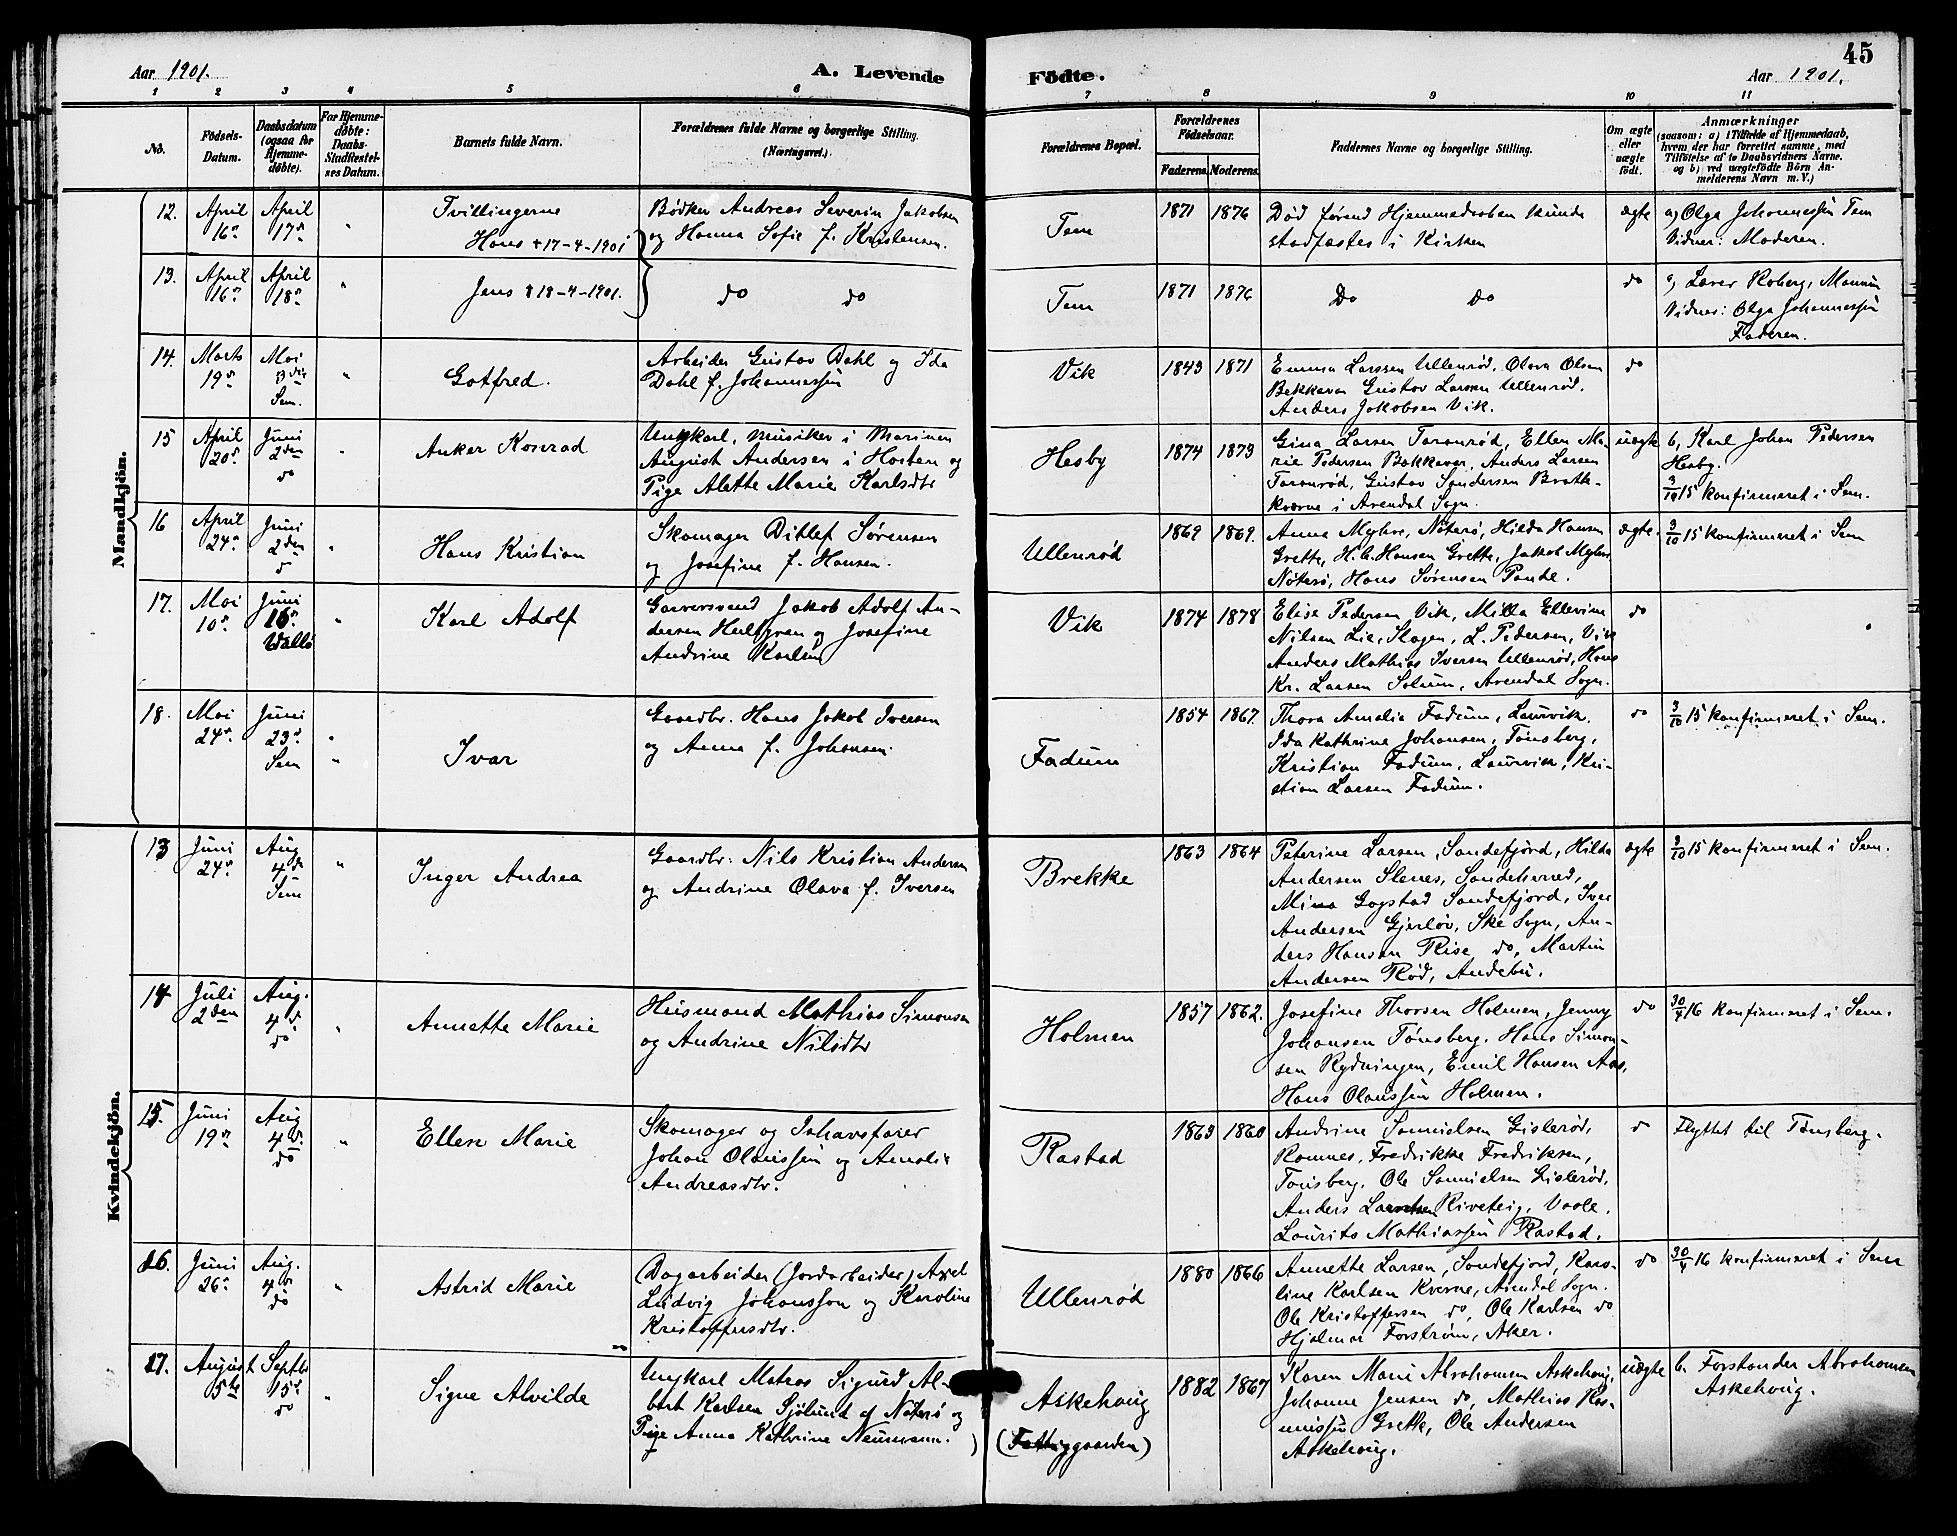 45
Aar 1901.
A. Levende Födte.
Aar 1901.
1 2 3 4 5 6 7 8 9 10 11
No.
Födsels-
Datum.
Daabsdatum
(ogsaa for
Hjemme-
döbte).
For Hjemme-
döbte:
Daabs-
Stadfæstel-
ses Datum.
Barnets fulde Navn.
Forældrenes fulde Navne og borgerlige Stilling.
(Næringsvei.)
Forældrenes Bopæl.
Forældrenes
Födselsaar.
Faderens. Moderens.
Faddernes Navne og borgerlige Stilling.
Om ægte
eller
uægte
födt.
Anmærkninger
(saasom: a) i Tilfælde af Hjemmedaab,
hvem der har forrettet samme, med
Tilföielse af to Daabsvidners Navne.
og b) ved uægtefödte Börn An-
melderens Navn m. V.)
Mandkjön.
12. April 16de April 17de " Tvillingerne
Hans + 17-4-1901
Bødker Andreas Severin Jakobsen
og Hanna Sofie f. Kristensen.
Tem 1871 1876
Død førend Hjemmedaaben kunde
stadfæstes i Kirken
ægte
a) Olga Johannessen Tem
Vidner: Moderen.
13. April 16de April 18de " Jens + 18-4-1901.
do do
Tem 1871 1876 Do Do do
a) Lærer Roberg,
Vidner: Olga Johannessen
Faderen.
14. Marts 19de Mai 3die Sem. " Gotfred.
Arbeider Gustav Dahl og Ida
Dahl f. Johannessen
Vik 1843 1871
Emma Larssen Ullenrød, Olava Olsen
Bekkevar Gustav Larsen Ullenrød.
Anders Jakobsen Vik.
do
15 April 20de Juni 2den do " Anker Konrad
Ungkarl, Musiker i Marinen
August Andersen i Horten og
Pige Alette Marie Karlsdtr
Hesby 1874 1873
Gina Larsen Taranrød, Ellen Ma-
rie Pedersen Bekkevar, Anders Larsen
Taranrød, Gustav Andersen Bratt-
kværne i Arendal Sogn.
uægte
b, Karl Johan Pedersen
Hesby.
3/10 15 konfirmeret i Sem.
16 April 24de Juni 2den do " Hans Kristian
Skomager Ditlef Sørensen
og Josefine f. Hansen.
Ullenrød 1869 1869.
Anna Myhre, Nøterø, Hilda Hansen
Grette, H. A. Hansen Grette, Jakob Myhre
Nøterø, Hans Sørensen
ægte. 3/10 15 konfirmeret i Sem
17. Mai 10de Juni 16de Vallø " Karl Adolf
Garversvend Jakob Adolf An-
dersen og Josefine
Andrine Karlsen
Vik 1874 1878
Elise Pedersen Vik, Milla Ellevine
Nilsen Lie, Slagen, L. Pedersen, Vik
Anders Mathias Iversen Ullenrød, Hans
Kr. Larsen Solum, Arendal Sogn.
do
18. Mai 24de Juni 23de Sem " Ivar
Gaardbr. Hans Jakob Iversen
og Anna f. Johansen.
Fadum 1854 1867.
Thora Amalia Fadum, Laurvik.
Ida Kathrine Johansen, Tønsberg,
Kristian Fadum, Laurvik, Kri-
stian Larsen Fadum.
do 3/10 15 konfirmeret i Sem.
Kvindekjön.
13 Juni 24de Aug 4de Sem " Inger Andrea
Gaardbr. Nils Kristian Andersen
og Andrine Olava f. Iversen
Brekke 1863 1864
Peterine Larsen, Sandefjord, Hilda
Andersen Slenes, Sandeherred,
Mina Gogstad Sandefjord, Iver
Andersen Gjerløv, Ske Sogn, An-
ders Hansen Rise do, Martin
Andersen Rød, Andebu.
ægte 3/10 15 konfirmeret i Sem.
14 Juli 2den Aug. 4de do " Annette Marie
Husmand Mathias Simonsen
og Andrine Nilsdtr
Holmen 1857 1862.
Josefine Thorsen Holmen, Jenny
Johansen Tønsberg. Hans Simon-
sen Rydningen, Emil Hansen Aas,
Hans Olaussen Holmen.
do 30/4 16 konfirmeret i Sem.
15. Juni 19de Aug 4de do " Ellen Marie
Skomager og Ishavsfarer
Johan Olaussen og Amalie
Andreasdtr.
Rastad 1863 1860
Andrine Samuelsen Gislerød,
Ramnes, Fredrikke Fredriksen,
Tønsberg. Ole Samuelsen Gislerød,
Anders Larsen Riveteig, Vaale.
Laurits Mathiassen Rastad.
do Flyttet til Tønsberg.
16. Juni 26de Aug. 4de do " Astrid Marie
(Dagarbeider (Jordarbeider) Axel
Ludvig Johansson og Karoline
Kristoffersdtr.
Ullenrød 1880 1866
Annette Larsen, Sandefjord, Karo-
line Karlsen Kværne, Arendal Sogn.
Ole Kristoffersen do, Ole Karlsen do
Hjalmar Forstrøm, Aker.
do 30/4 16 konfirmeret i Sem
17. August 5te Septbr 15de do " Signe Alvilde
Ungkarl Matros Sigurd Al-
bert Karlsen Sjølund af Nøterø og
Pige Anna Kathrine Neumann.
Askehoug
(Fattiggaarden)
1882 1867
Karen Marie Abrahamsen Askehoug,
Johanne Jensen do, Mathias Ras-
mussen Grette, Ole Andersen
Askehoug.
uægte b. Forstander Abrahamsen
Askehoug.